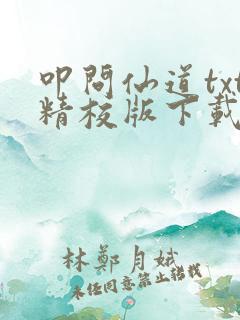 叩問仙道txt
精校版下載
林鄭月娥
未經同意禁止轉載